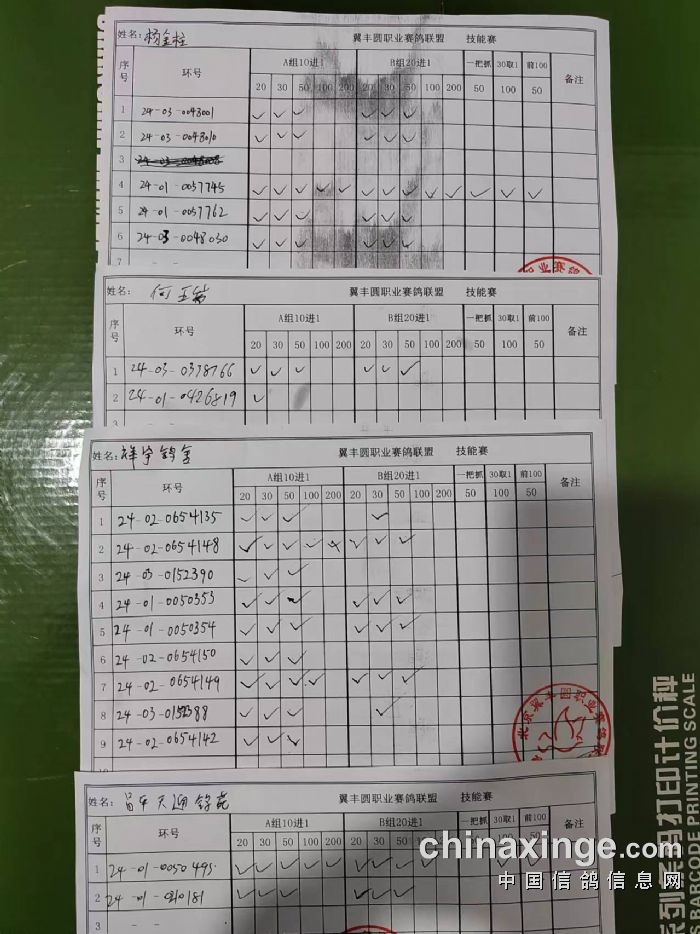 姓名: 杨金柱 翼丰圆职业赛鸽联盟 技能赛
序号 环号 A组10进1 B组20进1 一把抓 30取1 前100 备注
20 30 50 100 200 20 30 50 100 200 50 100 50
1 24-03-0048001 ✓ ✓ ✓ ✓ ✓ ✓
2 24-03-0048010 ✓ ✓ ✓ ✓ ✓ ✓
3
4 24-01-0037745 ✓ ✓ ✓ ✓ ✓ ✓ ✓ ✓ ✓ ✓ ✓ ✓ ✓
5 24-01-0037762 ✓ ✓ ✓ ✓ ✓ ✓
6 24-03-0048030 ✓ ✓ ✓ ✓ ✓ ✓
姓名: 何玉 翼丰圆职业赛鸽联盟 技能赛
序号 环号 A组10进1 B组20进1 一把抓 30取1 前100 备注
20 30 50 100 200 20 30 50 100 200 50 100 50
1 24-03-0338766 ✓ ✓ ✓ ✓ ✓ ✓
2 24-01-0426819 ✓
3
姓名: 祥宇鸽舍 翼丰圆职业赛鸽联盟 技能赛
序号 环号 A组10进1 B组20进1 一把抓 30取1 前100 备注
20 30 50 100 200 20 30 50 100 200 50 100 50
1 24-02-0654135 ✓ ✓ ✓ ✓
2 24-02-0654148 ✓ ✓ ✓ ✓ ✓ ✓ ✓ ✓
3 24-03-0152390 ✓ ✓ ✓
4 24-01-0050353 ✓ ✓ ✓ ✓ ✓ ✓
5 24-01-0050354 ✓ ✓ ✓ ✓ ✓ ✓
6 24-02-0654150 ✓ ✓ ✓
7 24-02-0654149 ✓ ✓ ✓ ✓ ✓ ✓ ✓
8 24-03-0152388 ✓ ✓ ✓ ✓
9 24-02-0654142 ✓ ✓ ✓
北京翼丰圆职业赛鸽联
姓名: 昌平天通鸽苑 翼丰圆职业赛鸽联盟 技能赛
序号 环号 A组10进1 B组20进1 一把抓 30取1 前100 备注
20 30 50 100 200 20 30 50 100 200 50 100 50
1 24-01-0050495 ✓ ✓ ✓ ✓ ✓ ✓ ✓ ✓ ✓ ✓ ✓ ✓
2 24-01- ✓ ✓ ✓ ✓ ✓ ✓
3
chinaxinge.com
中国信鸽信息网
系列条码打印计价秤
BARCODE PRINTING SCALE